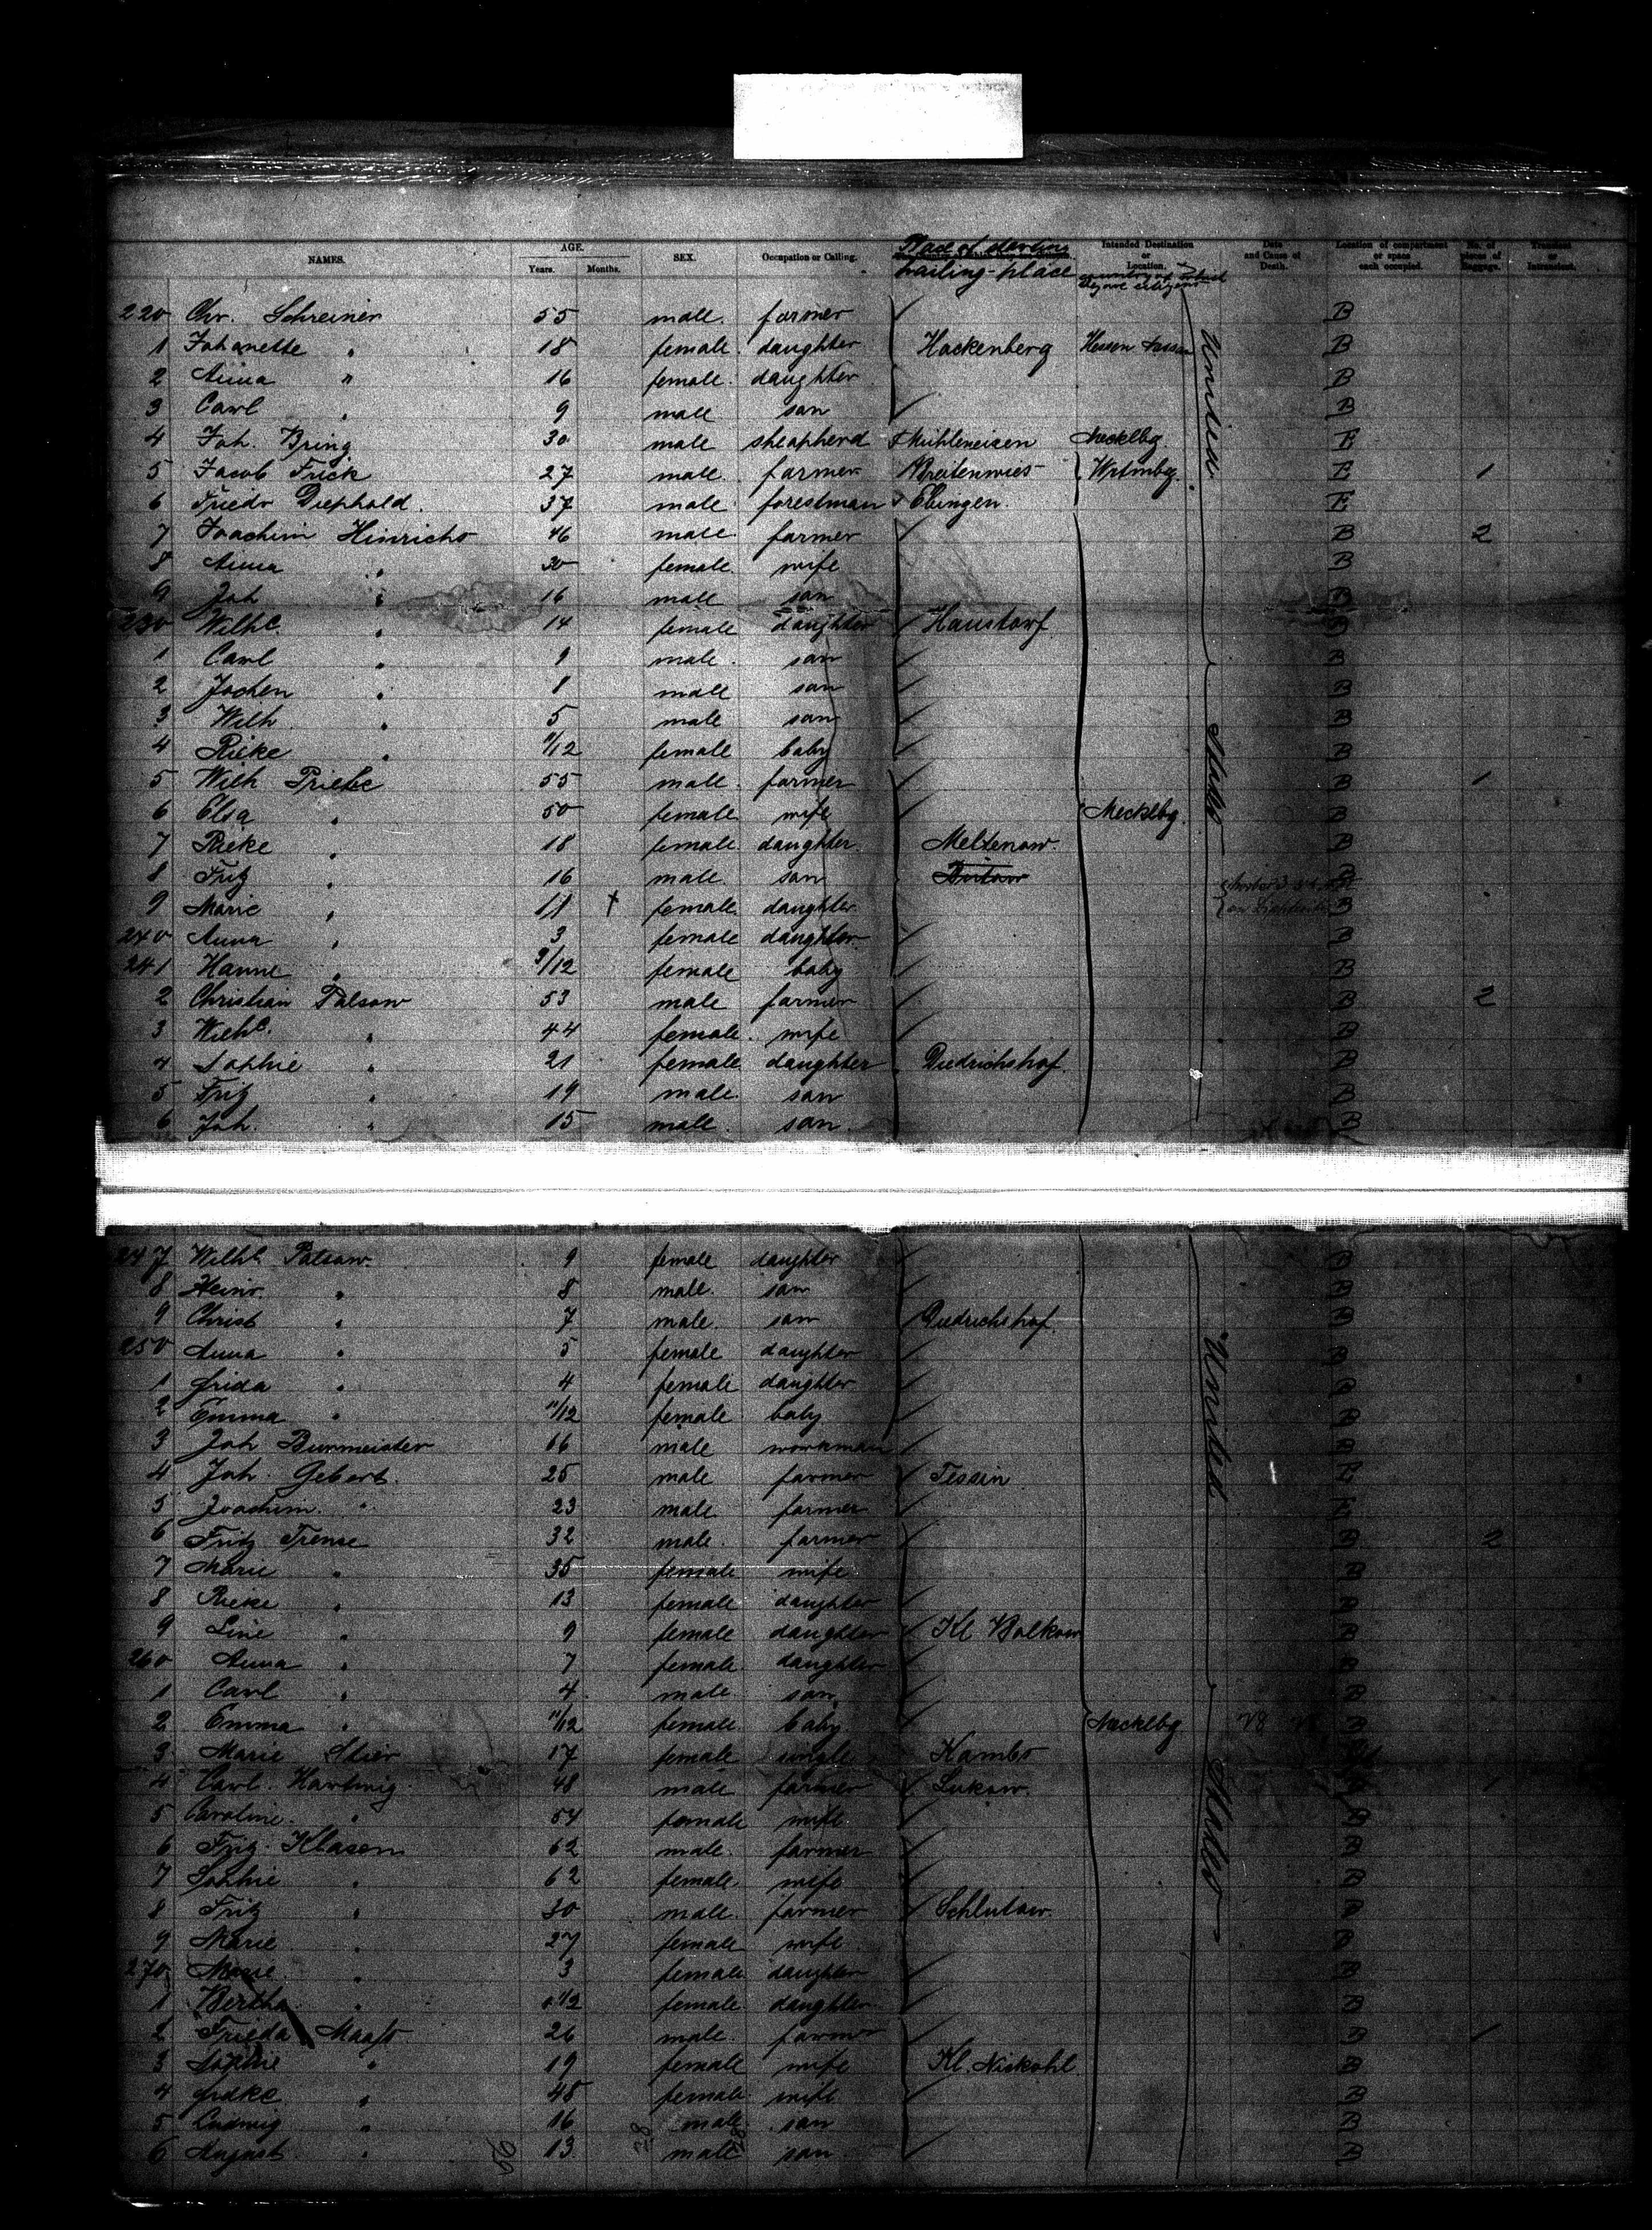 NAMES. AGE. Years. Months. SEX. Occupation or Calling. Place of starting hailing-place Intended Destination or Location. country of which they are citizens Date and Cause of Death. Location of compartment or space each occupied. No. of pieces of Baggage. Transient or Intransient.
220 Chr. Schreiner 55 male. farmer B
1 Johanette " 18 female. daughter Hackenberg Hessen Nassau B
2 Anna " 16 female. daughter B
3 Carl " 9 male son B
4 Joh. Bring 30 male sheapherd Mecklbg. E
5 Jacob Frick 27 male. farmer Breitenwies Wrtmbg. E 1
6 Friedr Diephold. 37 male forestman Ebingen. E
7 Joachim Hinrichs 46 male farmer B 2
8 Anna " 30 female. wife B
9 Joh " 16 male son B
230 Wilhe. " 14 female daughter Haustorf B
1 Carl " 9 male. son B
2 Jochen " 8 male son B
3 Wilh " 5 male son B
4 Rieke " /12 female baby B
5 Wilh Priebe 55 male. farmer B 1
6 Elsa " 50 female wife Mecklbg. B
7 Rieke " 18 female. daughter. Meltenow. B
8 Fritz " 16 male. son B
9 Marie " 11 † female. daughter. B
240 Anna " 3 female daughter. B
241 Hanne " 9/12 female baby B
2 Christian Palsow 53 male farmer B 2
3 Wilhe. " 44 female. wife B
4 Sophie " 21 female. daughter Diedrichshof. B
5 Fritz " 19 male. son B
6 Joh. " 15 male. son. B
United States
247 Wilhe Palsow. 9 female daughter B
8 Heinr. " 8 male. son B
9 Christ " 7 male. son Diedrichshof. B
250 Anna " 5 female daughter B
1 Frida " 4 female daughter B
2 Emma " 11/12 female. baby B
3 Joh Burmeister 66 male workman B
4 Joh. Gebert. 25 male farmer Tessin E
5 Joachim " 23 male. farmer E
6 Fritz Trense 32 male. farmer B 2
7 Marie " 35 female wife B
8 Rieke " 13 female daughter B
9 Line " 9 female daughter Kl Bolkow B
260 Anna " 7 female. daughter B
1 Carl " 4 male. son B
2 Emma " 11/12 female. baby Mecklbg B
3 Marie Stier 17 female. single Kambs
4 Carl. Hartwig. 48 male farmer Lukow. 1
5 Caroline. " 54 female wife B
6 Fritz Klasen 62 male. farmer B
7 Sophie " 62 female. wife B
8 Fritz " 30 male. farmer Schlutow. B
9 Marie " 27 female wife B
270 Marie " 3 female daughter B
1 Bertha " 11/12 female. daughter B
2 Frieda Maass 26 male. farmer B 1
3 Sophie " 19 female wife Kl. Niskohl B
4 " 48 female wife B
5 Ludwig " 16 male. son B
6 August " 13 male son B
United States